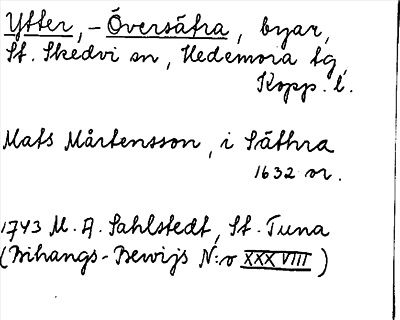 Ytter, - Översätra, byar,
St. Skedvi sn, Hedemora tg,
Kopp. l.
Mats Mårtensson, i Säthra
1632 or.
1743 M. A. Sahlstedt, St. Tuna
(Bihangs-Bewijs N:o XXXVIII)